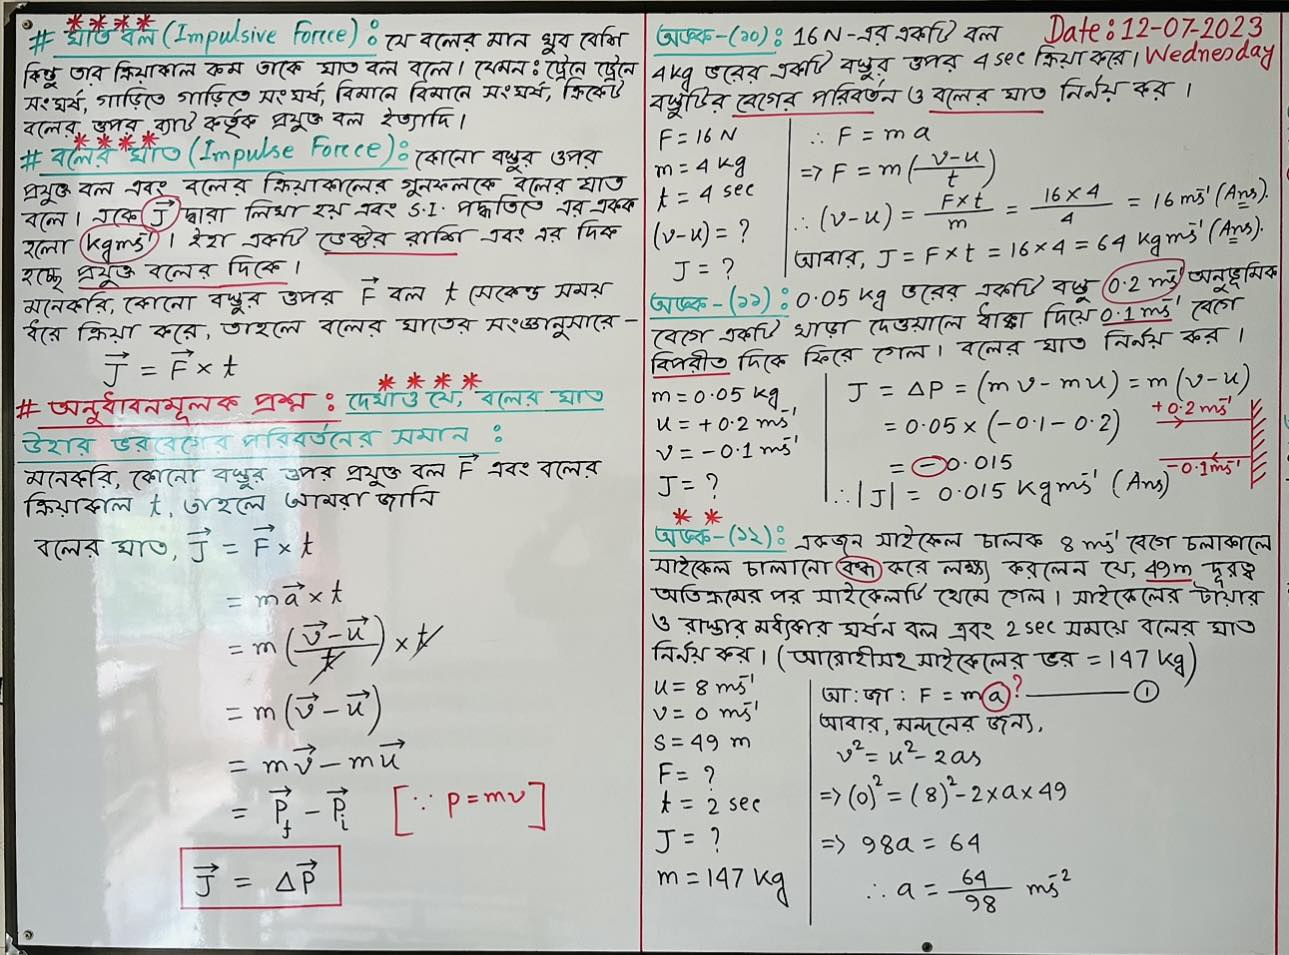 # ঘাত বল (Impulsive Forrce) : যে বলের মান খুব বেশি
কিন্তু তার ক্রিয়াকাল কম তাকে ঘাত বল বলে। যেমন : ট্রেনে ট্রেনে
সংঘর্ষ, গাড়িতে গাড়িতে সংঘর্ষ, বিমানে বিমানে সংঘর্ষ, ক্রিকেট
বলের উপর ব্যাট কর্তৃক প্রযুক্ত বল ইত্যাদি।
# বলের ঘাত (Impulse Forrce) : কোনো বস্তুর ওপর
প্রযুক্ত বল এবং বলের ক্রিয়াকালের গুনফলকে বলের ঘাত
বলে। একে J⃗ দ্বারা লিখা হয় এবং S.I. পদ্ধতিতে এর একক
হলো kgms⁻¹। ইহা একটি ভেক্টর রাশি এবং এর দিক
হচ্ছে প্রযুক্ত বলের দিকে।
মনেকরি, কোনো বস্তুর উপর F⃗ বল t সেকেন্ড সময়
ধরে ক্রিয়া করে, তাহলে বলের ঘাতের সংজ্ঞানুসারে -
J⃗ = F⃗ × t
# অনুধাবনমূলক প্রশ্ন : দেখাও যে, বলের ঘাত
উহার ভরবেগের পরিবর্তনের সমান :
মনেকরি, কোনো বস্তুর উপর প্রযুক্ত বল F⃗ এবং বলের
ক্রিয়াকাল t, তাহলে আমরা জানি
বলের ঘাত, J⃗ = F⃗ × t
= ma⃗ × t
= m (v⃗ - u⃗ / t) × t
= m (v⃗ - u⃗)
= mv⃗ - mu⃗
= P⃗f - P⃗i [∵ p = mv]
J⃗ = ΔP⃗
Date : 12-07-2023
Wednesday
অঙ্ক-(১০) : 16 N-এর একটি বল
4 kg ভরের একটি বস্তুর ওপর 4 sec ক্রিয়া করে।
বস্তুটির বেগের পরিবর্তন ও বলের ঘাত নির্নয় কর।
F = 16 N
m = 4 kg
t = 4 sec
(v-u) = ?
J = ?
∴ F = ma
=> F = m (v-u / t)
∴ (v-u) = F×t / m = 16×4 / 4 = 16 ms⁻¹ (Ans).
আবার, J = F×t = 16×4 = 64 kgms⁻¹ (Ans).
অঙ্ক-(১১) : 0.05 kg ভরের একটি বস্তু 0.2 ms⁻¹ অনুভূমিক
বেগে একটি খাড়া দেওয়ালে ধাক্কা দিয়ে 0.1 ms⁻¹ বেগে
বিপরীত দিকে ফিরে গেল। বলের ঘাত নির্নয় কর।
m = 0.05 kg
u = +0.2 ms⁻¹
v = -0.1 ms⁻¹
J = ?
J = ΔP = (mv - mu) = m (v-u)
= 0.05 × (-0.1 - 0.2)
= -0.015
∴ |J| = 0.015 kgms⁻¹ (Ans)
+0.2 ms⁻¹
-0.1 ms⁻¹
অঙ্ক-(১২) : একজন সাইকেল চালক 8 ms⁻¹ বেগে চলাকালে
সাইকেল চালানো বন্ধ করে লক্ষ্য করলেন যে, 49m দূরত্ব
অতিক্রমের পর সাইকেলটি থেমে গেল। সাইকেলের টায়ার
ও রাস্তার মধ্যকার ঘর্ষন বল এবং 2 sec সময়ে বলের ঘাত
নির্নয় কর। (আরোহীসহ সাইকেলের ভর = 147 kg)
u = 8 ms⁻¹
v = 0 ms⁻¹
s = 49 m
F = ?
t = 2 sec
J = ?
m = 147 kg
আ : জা : F = ma ? ——— ①
আবার, মন্দনের জন্য,
v² = u² - 2as
=> (0)² = (8)² - 2×a×49
=> 98a = 64
∴ a = 64 / 98 ms⁻²